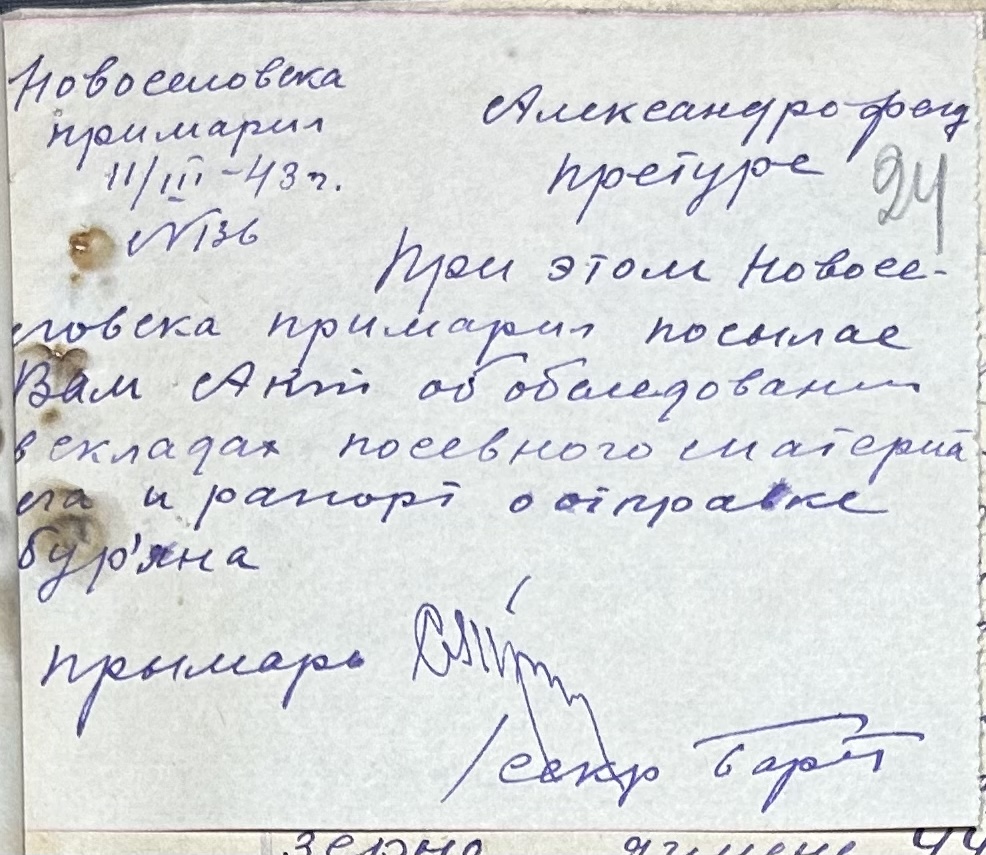 Новоселовска
примария
11/III-43 г.
№ 136
Александрофелд
претуре
24
При этом Новосе-
ловска примария посылае
Вам Акт об обследовании
в складах посевного материа
ла и рапорт о отправке
бур'яна
прымарь
/секр
зерно ячмене 44